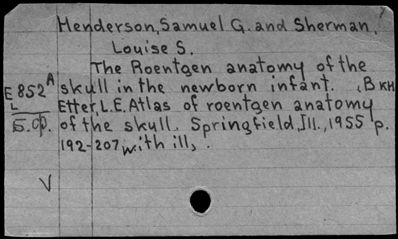 Henderson, Samuel G. and Sherman,
Louise S.
The Roentgen anatomy of the
E 852 A skull in the newborn infant. , В кн
L Etter, L.E. Atlas of roentgen anatomy
б.ф. of the skull. Springfield, Ill., 1955 p.
192-207 with ill, .
V